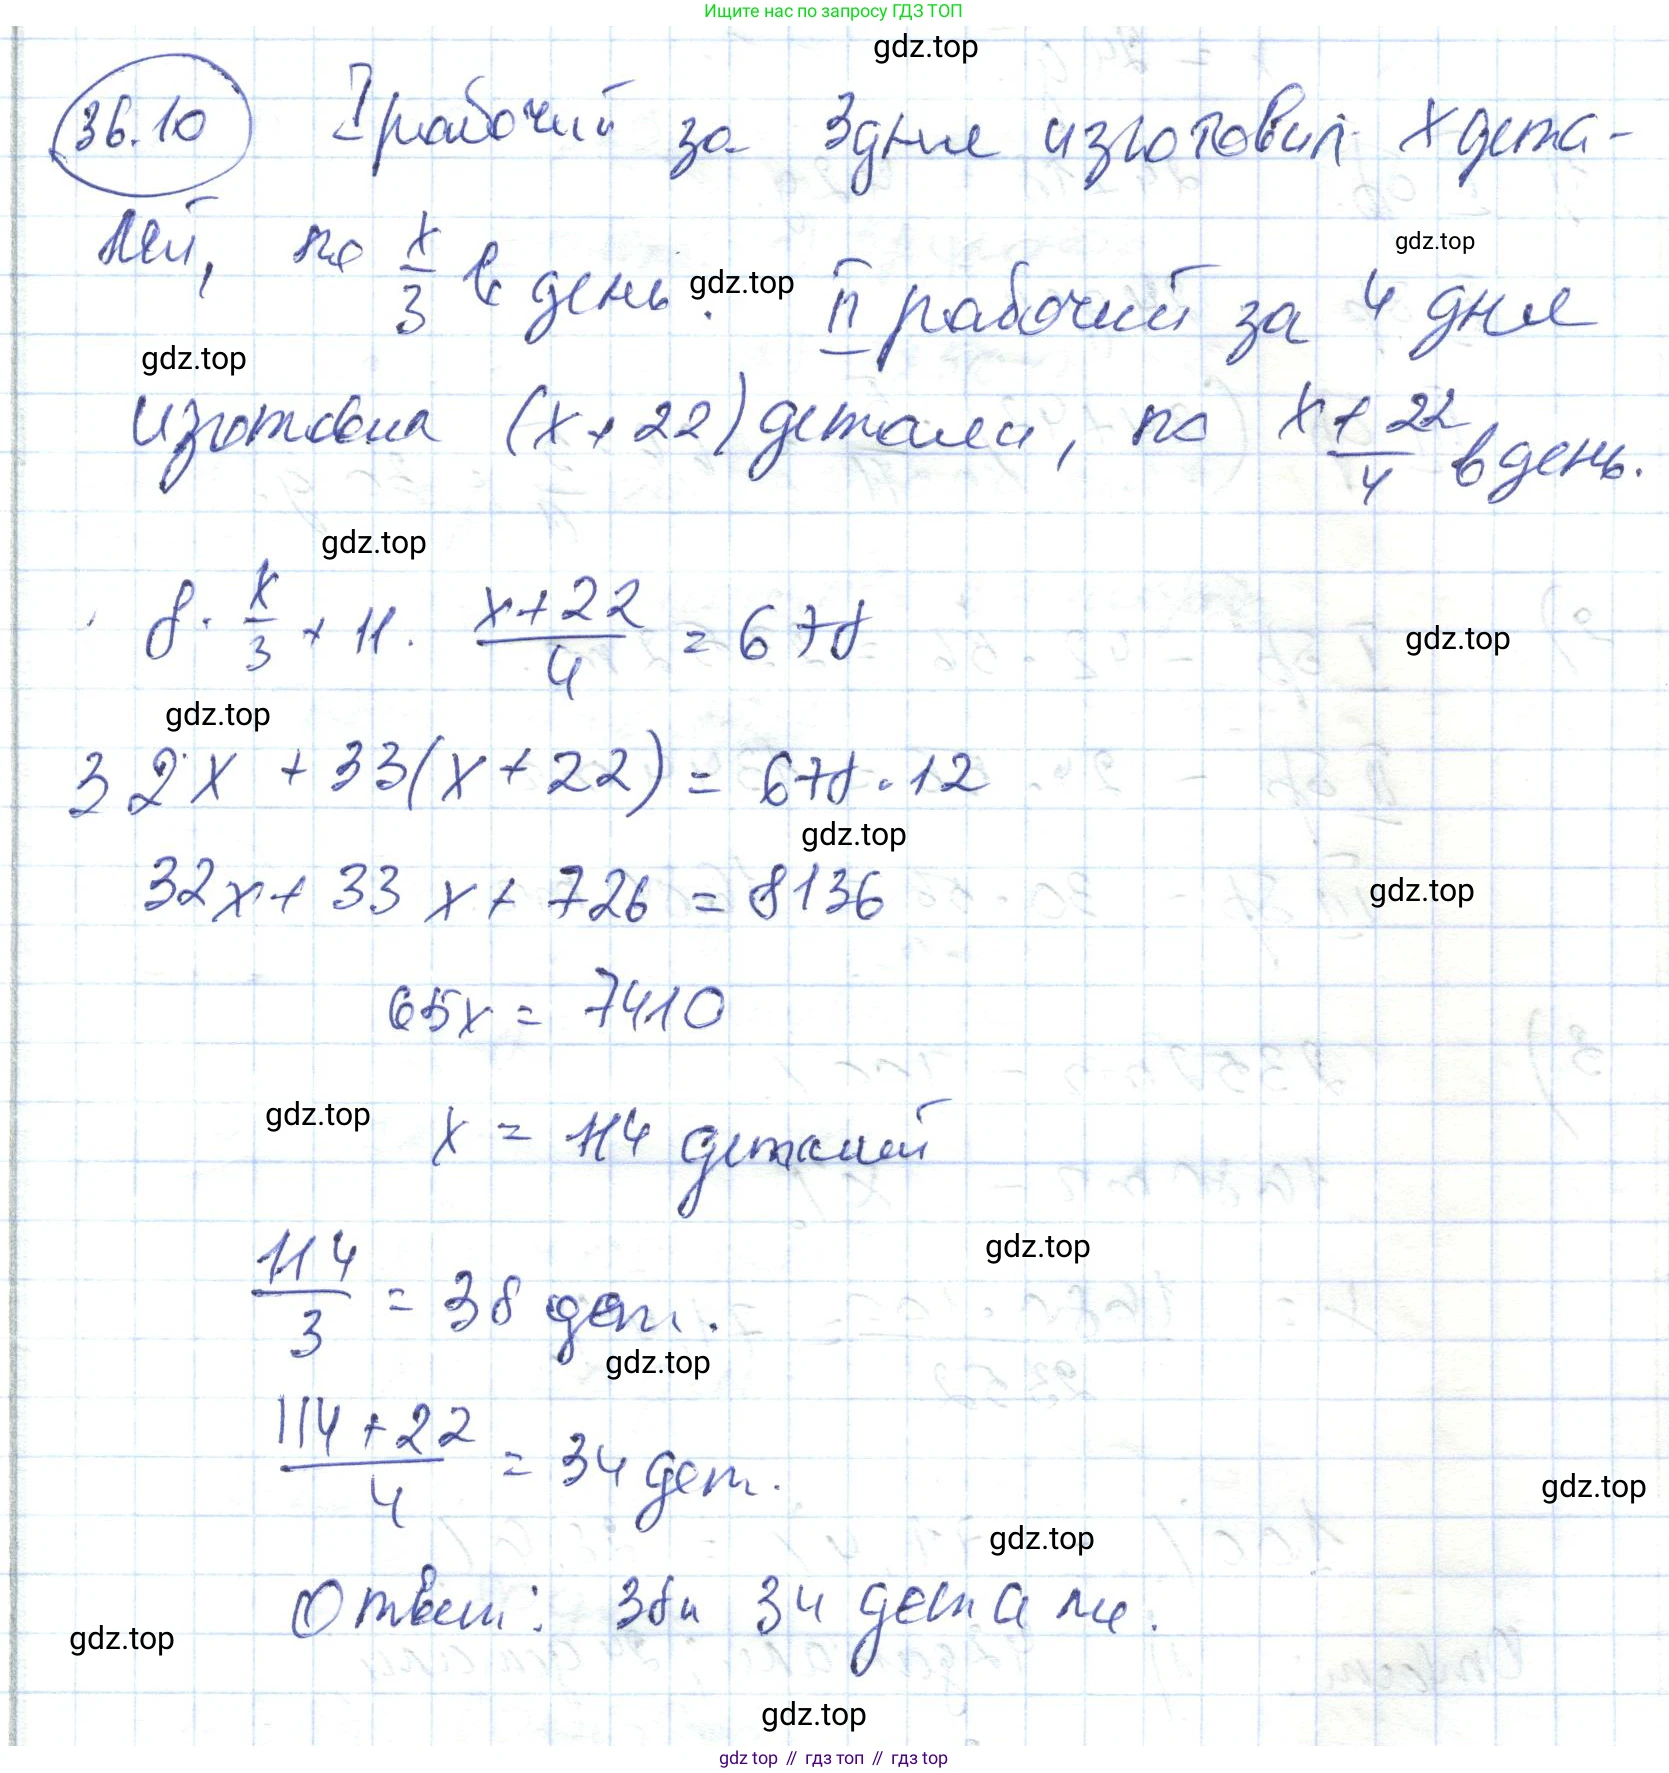 Ищите нас по запросу ГДЗ ТОП
gdz.top
36.10 I рабочий за 3 дня изготовил x дета-
лей, по x/3 в день. II рабочий за 4 дня
gdz.top
gdz.top
gdz.top
изготовил (x+22) детали, по x+22/4 в день.
gdz.top
8 · x/3 + 11 · x+22/4 = 678
gdz.top
gdz.top
32x + 33(x+22) = 678 · 12
gdz.top
32x + 33x + 726 = 8136
gdz.top
65x = 7410
gdz.top
x = 114 деталей
gdz.top
114/3 = 38 дет.
gdz.top
114+22/4 = 34 дет.
gdz.top
gdz.top
Ответ: 38 и 34 детали.
gdz.top
gdz.top
gdz top // гдз топ // гдз top